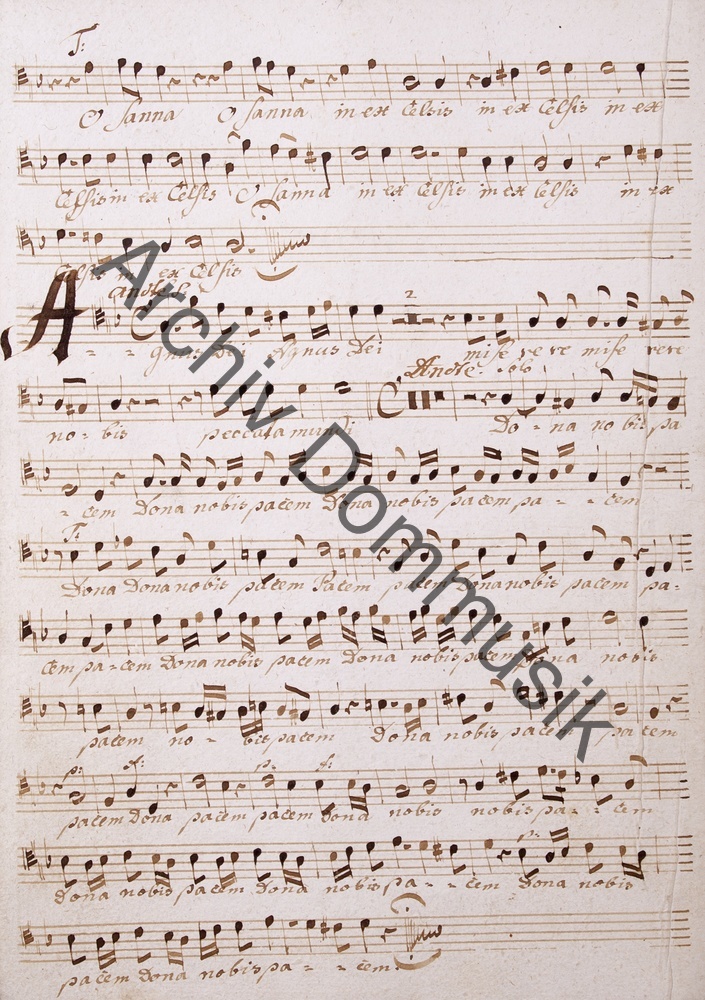 T:
O Sanna O Sanna in ex Celsis in ex Celsis in ex
Celsis in ex Celsis O Sanna in ex Celsis in ex Celsis in ex
Celsis in ex Celsis
A
- - gnus Dei Agnus Dei mise re re mise rere
2
Andte: Solo
no - bis peccata mundi Do - na no bis pa
- cem Dona nobis pacem Dona nobis pacem pa - - cem
T:
Dona Dona nobis pacem Pacem pacem Dona nobis pacem pa -
cem pa - cem Dona nobis pacem Dona nobis pacem Dona nobis
pacem no - bis pacem Dona nobis pacem pacem
p: f: p: f:
pacem Dona pacem pacem Dona nobis nobis pa - - cem
p:
Dona nobis pacem Dona nobis pa - - cem Dona nobis
pacem Dona nobis pa - - cem.
Archiv Dommusik